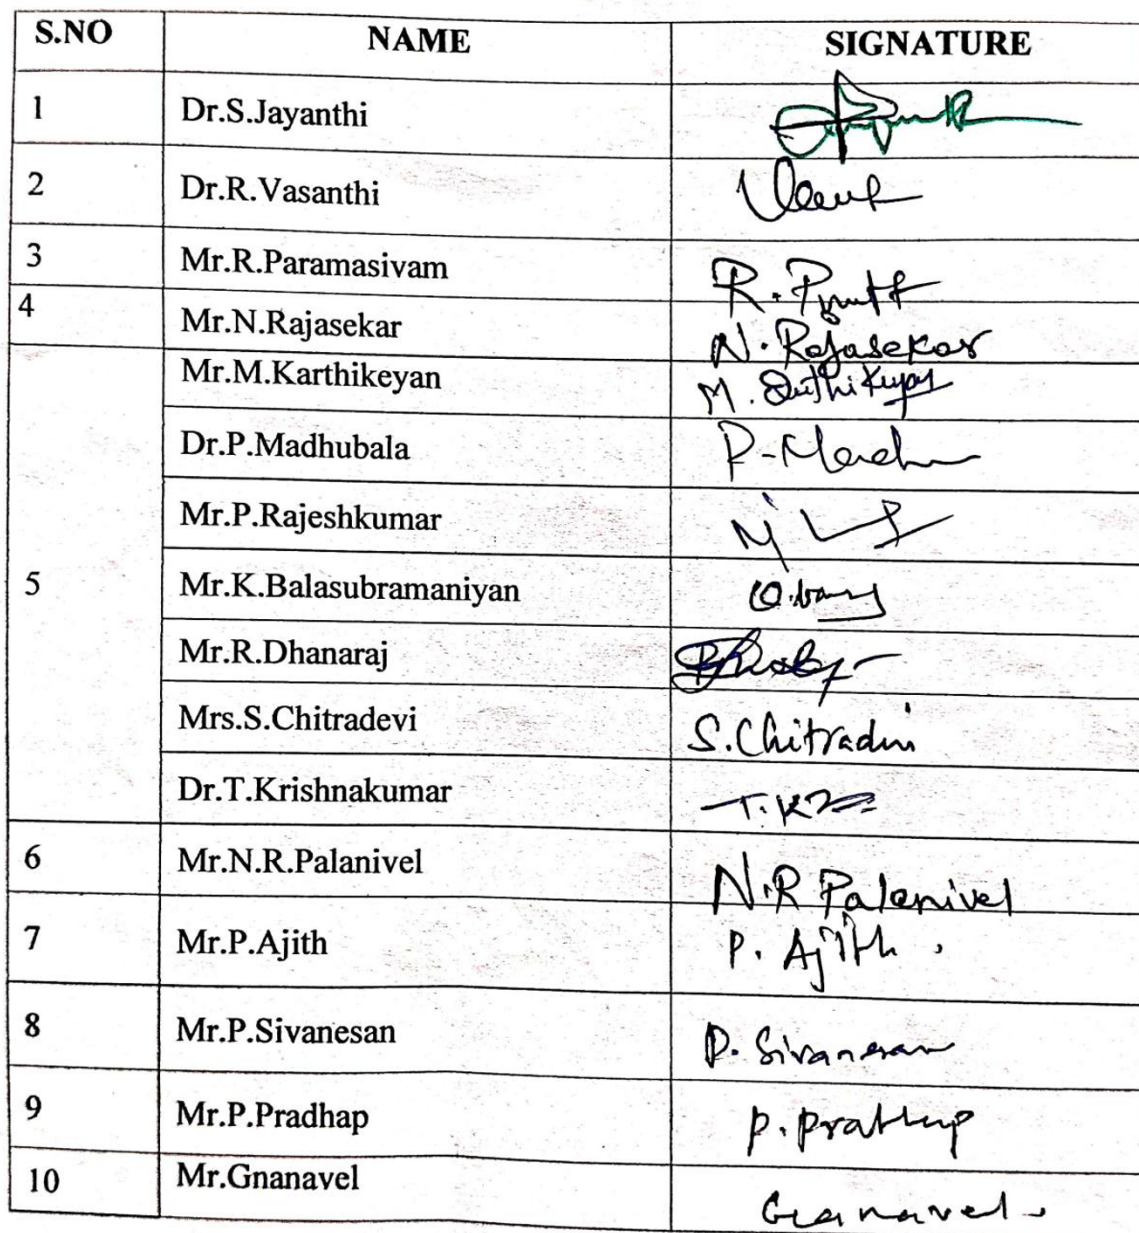 S.NO NAME SIGNATURE
1 Dr.S.Jayanthi
2 Dr.R.Vasanthi
3 Mr.R.Paramasivam R.
4 Mr.N.Rajasekar N. Rajasekar
Mr.M.Karthikeyan M.
Dr.P.Madhubala P-Madhu
Mr.P.Rajeshkumar
5 Mr.K.Balasubramaniyan
Mr.R.Dhanaraj
Mrs.S.Chitradevi S.Chitradevi
Dr.T.Krishnakumar T.K
6 Mr.N.R.Palanivel N.R Palanivel
7 Mr.P.Ajith P. Ajith.
8 Mr.P.Sivanesan P. Sivanesan
9 Mr.P.Pradhap P. Prathap
10 Mr.Gnanavel Gnanavel.